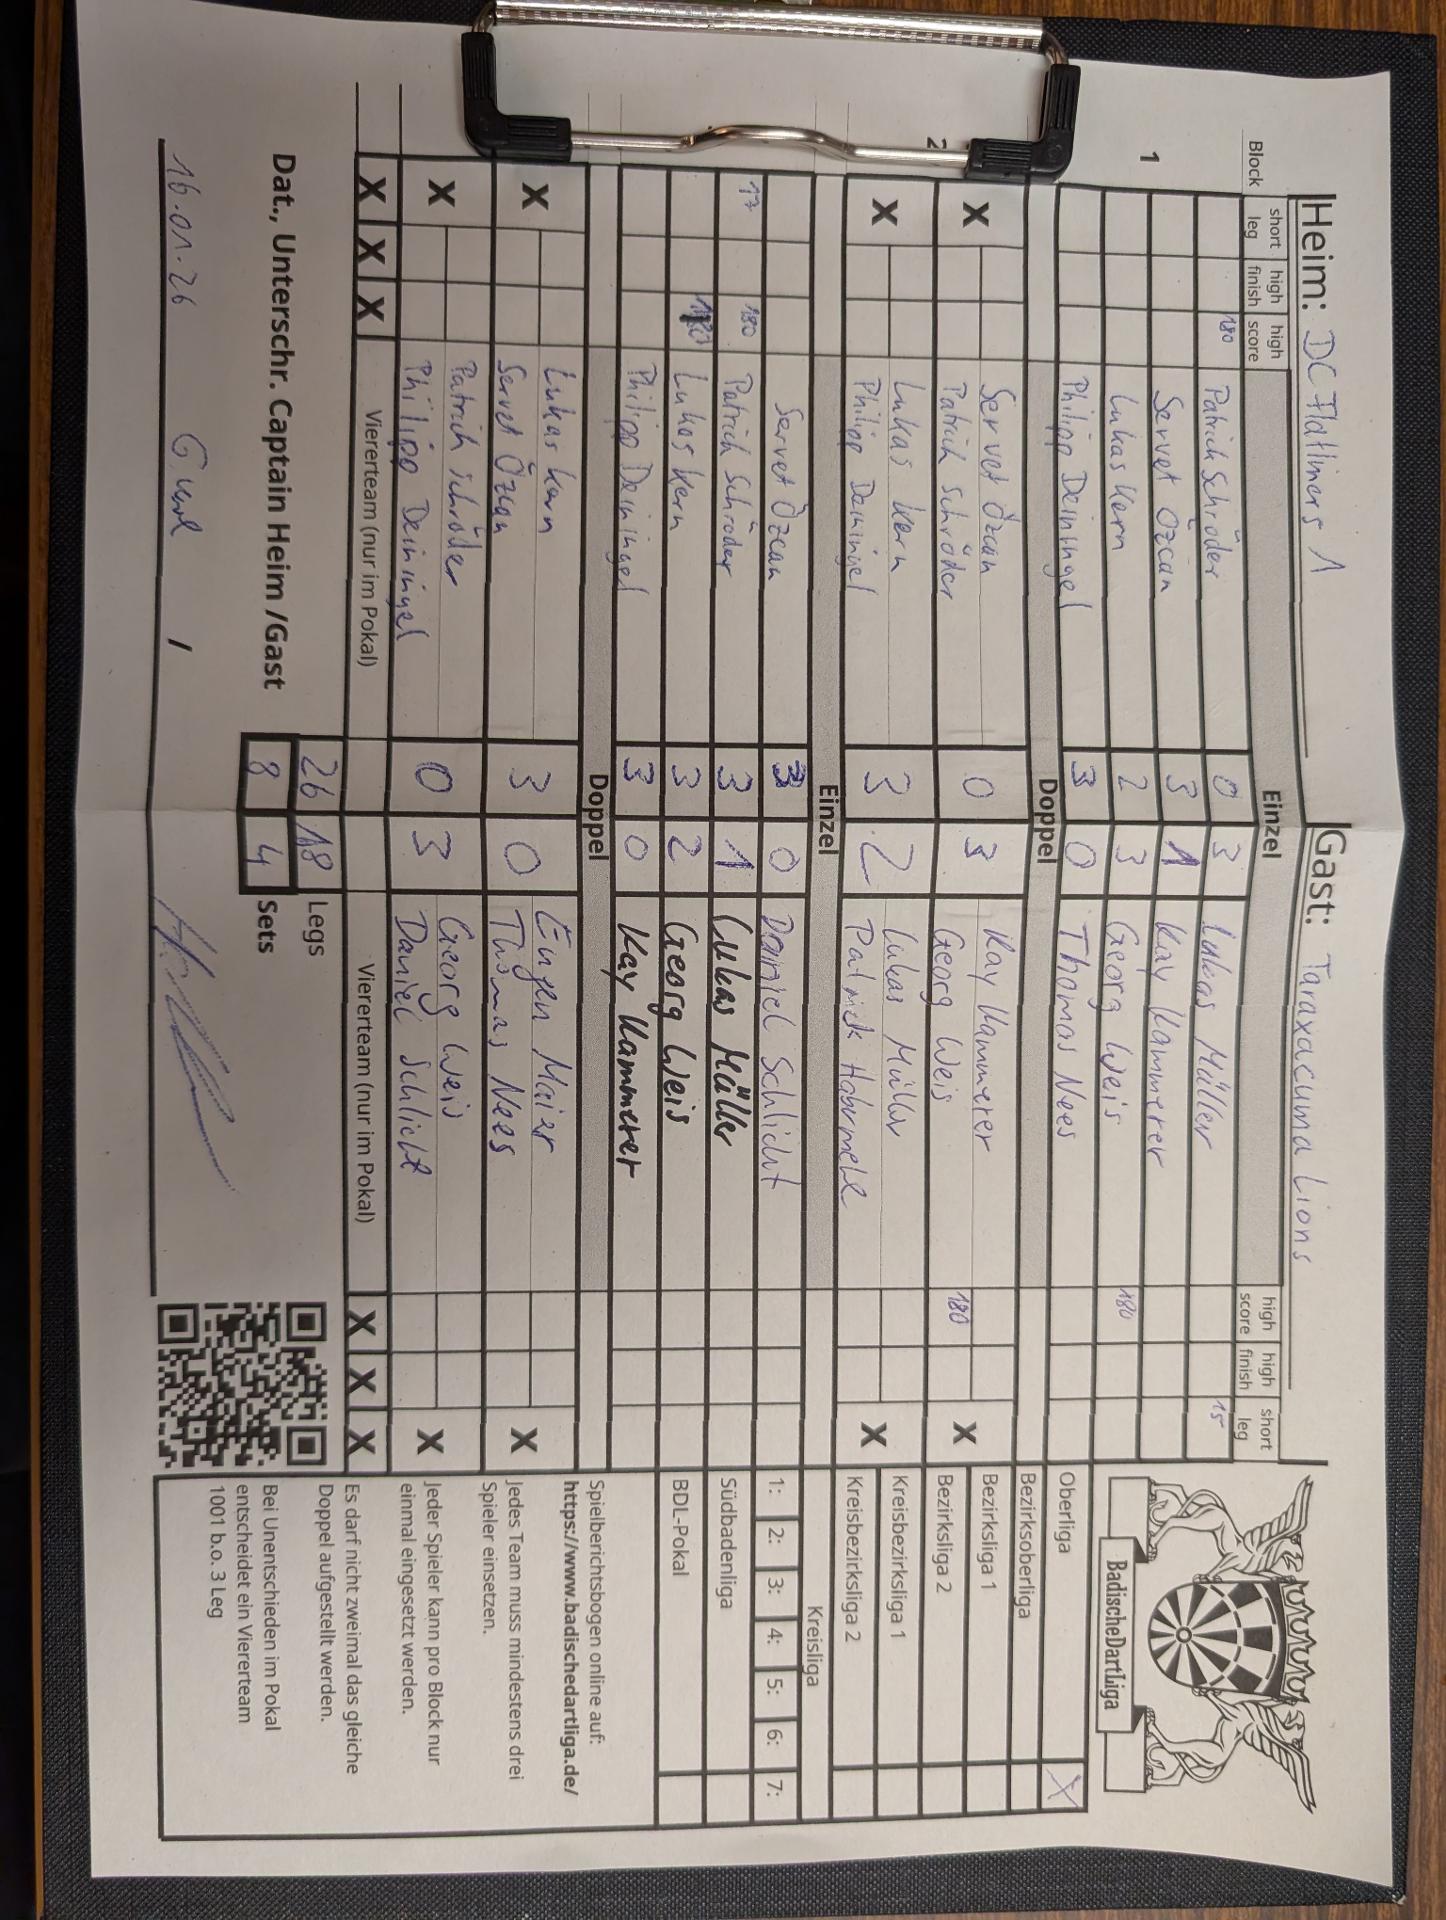 Heim: DC Flatliners 1 Gast: Taraxacuma Lions
Block short leg high finish high score Einzel high score high finish short leg
1 180 Patrick Schröder 0 3 Lukas Müller 15
Servet Özcan 3 1 Kay Kammerer
Lukas Kern 2 3 Georg Weis 180
Philipp Deininger 3 0 Thomas Nees
Doppel
X Servet Özcan 0 3 Kay Kammerer X
Patrick Schröder Georg Weis 180
X Lukas Kern 3 2 Lukas Müller X
Philipp Deininger Patrick
2 Einzel
Servet Özcan 3 0 Daniel Schlicht
17 180 Patrick Schröder 3 1 Lukas Müller
180 Lukas Kern 3 2 Georg Weis
Philipp Deininger 3 0 Kay Kammerer
Doppel
X Lukas Kern 3 0 Eugen Maier X
Servet Özcan Thomas Nees
X Patrick Schröder 0 3 Georg Weis X
Philipp Deininger Daniel Schlicht
X X X Viererteam (nur im Pokal) Viererteam (nur im Pokal) X X X
26 18 Legs
Dat., Unterschr. Captain Heim /Gast 8 4 Sets
16.01.26 /
BadischeDartLiga
Oberliga X
Bezirksoberliga
Bezirksliga 1
Bezirksliga 2
Kreisbezirksliga 1
Kreisbezirksliga 2
Kreisliga
1: 2: 3: 4: 5: 6: 7:
Südbadenliga
BDL-Pokal
Spielberichtsbogen online auf:
https://www.badischedartliga.de/
Jedes Team muss mindestens drei
Spieler einsetzen.
Jeder Spieler kann pro Block nur
einmal eingesetzt werden.
Es darf nicht zweimal das gleiche
Doppel aufgestellt werden.
Bei Unentschieden im Pokal
entscheidet ein Viererteam
1001 b.o. 3 Leg